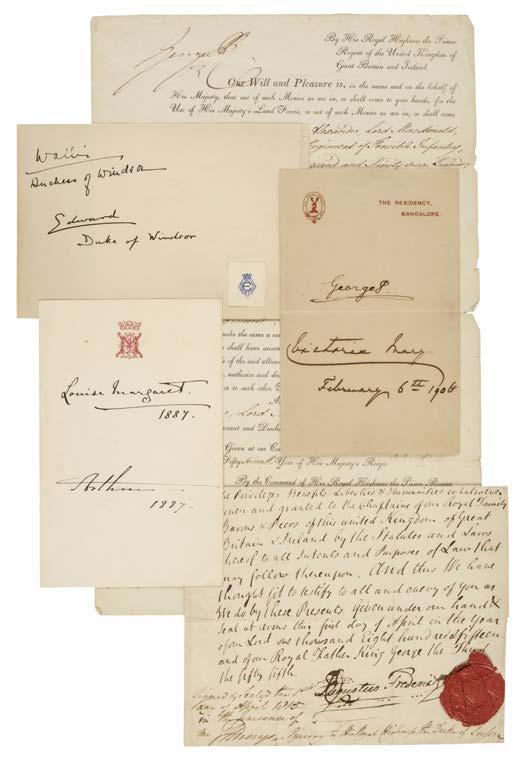 By His Royal Highness the Prince
Regent of the United Kingdom of
Great Britain and Ireland.
George P.
Our Will and Pleasure is, in the name and on the behalf of
His Majesty, that out of such Monies as are in, or shall come to your hands, for the
Use of His Majesty's Land Forces, or out of such Monies as are in, or shall come
Lord Macdonald,
Regiment of Fencible Infantry,
and Ninety
Wallis
Duchess of Windsor
Edward
Duke of Windsor
THE RESIDENCY,
BANGALORE
George P.
Victoria Mary
February 6th 1906
make the same a
shall have
of the said
authorize and
to such other
Lord
and
Given at our
Fifty seventh Year of His Majesty's Reign.
By the Command of His Royal Highness the Prince Regent
Louise Margaret.
1887.
Arthur
1887.
Privileges Benefits Liberties & Immunities
and granted to the Chaplains of our Royal Family
Barons & Peers of this united Kingdom of Great
Britain & Ireland by the Statutes and Laws
to all Intents and Purposes of Law that
may follow thereupon. And this We have
thought fit to testify to all and every of you as
We do by these Presents. Given under our hand &
Seal at arms this first day of April in the Year
of our Lord one thousand Eight hundred & fifteen
and of our Royal Father King George the Third
the fifty fifth.
Signed & Sealed the
day of April 1815
in the presence of
Augustus Frederick
to His Royal Highness the Duke of Sussex